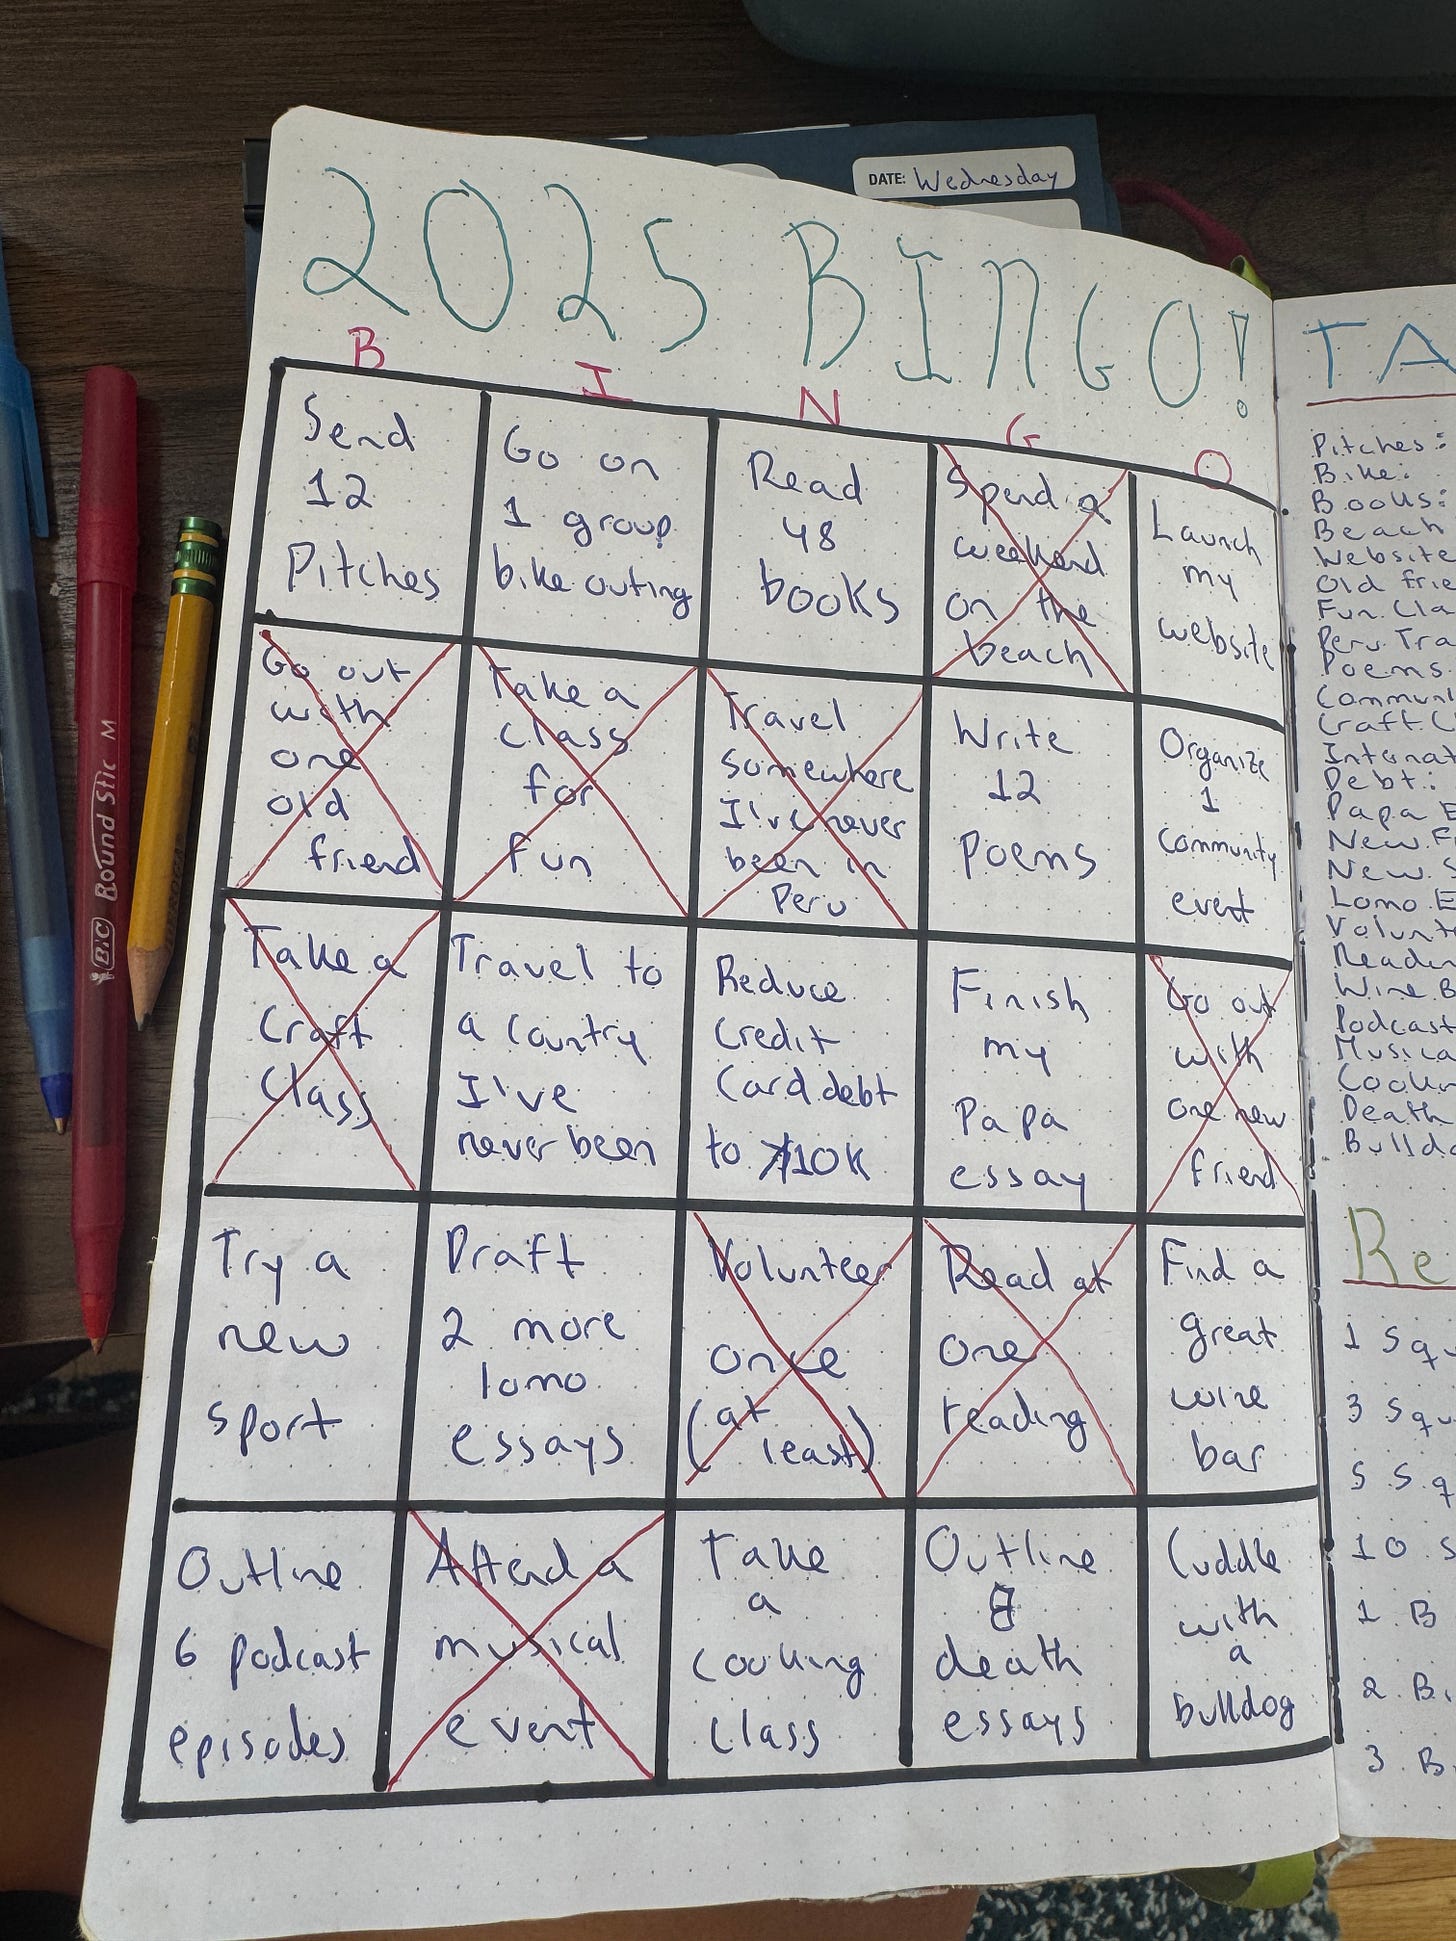 DATE: Wednesday
2025 BINGO!
B I N G O
Send
12
Pitches
Go on
1 group
bike outing
Read
48
books
Spend a
weekend
on the
beach
Launch
my
website
Go out
with
one
old
friend
Take a
class
for
fun
Travel
somewhere
I've never
been in
Peru
Write
12
poems
Organize
1
community
event
Take a
Craft
Class
Travel to
a country
I've
never been
Reduce
Credit
Card debt
to 10K
Finish
my
Papa
essay
Go out
with
one new
friend
Try a
new
sport
Draft
2 more
lomo
essays
Volunteer
once
(at
least)
Read at
one
reading
Find a
great
wine
bar
Outline
6 podcast
episodes
Attend a
musical
event
Take
a
cooking
class
Outline
8
death
essays
Cuddle
with
a
bulldog
TA
Pitches:
Bike:
Books:
Beach
Website
Old frie
Fun Cla
Peru Tra
Poems
Communi
Craft C
Internat
Debt:
Papa E
New F
New S
Lomo E
Volunte
Readin
Wine B
Podcast
Musica
Cookin
Death
Bulldo
Re
1 Squ
3 Squ
5 Sq
10 S
1 B
2 Bi
3 B
BIC Round Stic M